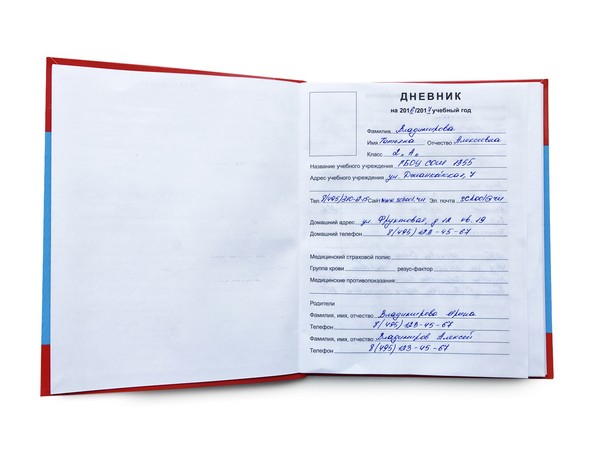 ДНЕВНИК
на 2016/2017 учебный год
Фамилия Владимирова
Имя Татьяна Отчество Алексеевна
Класс 2 "А"
Название учебного учреждения ГБОУ СОШ 1355
Адрес учебного учреждения ул. Джанкойская, 4
Тел. Сайт www.school.ru Эл. почта school@ru
Домашний адрес ул. Фруктовая, д 12 кв. 19
Домашний телефон 8(495) 123-45-67
Медицинский страховой полис
Группа крови резус-фактор
Медицинские противопоказания
Родители
Фамилия, имя, отчество Владимирова Ирина
Телефон 8(495) 123-45-67
Фамилия, имя, отчество Владимиров Алексей
Телефон 8(495) 123-45-67